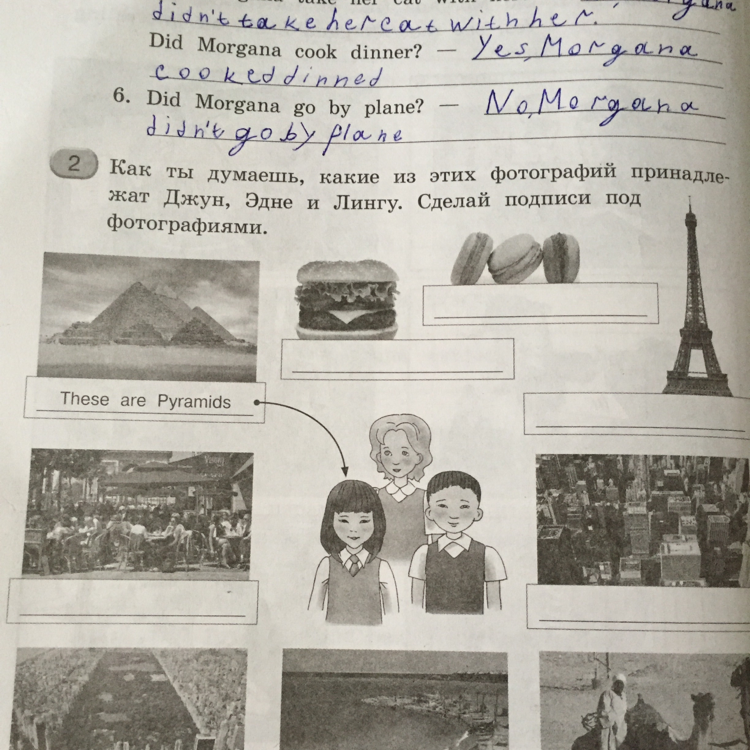 didn't take her cat with her.
Did Morgana cook dinner? — Yes, Morgana
cooked dinned
6. Did Morgana go by plane? — No, Morgana
didn't go by plane
2 Как ты думаешь, какие из этих фотографий принадле-
жат Джун, Эдне и Лингу. Сделай подписи под
фотографиями.
These are Pyramids